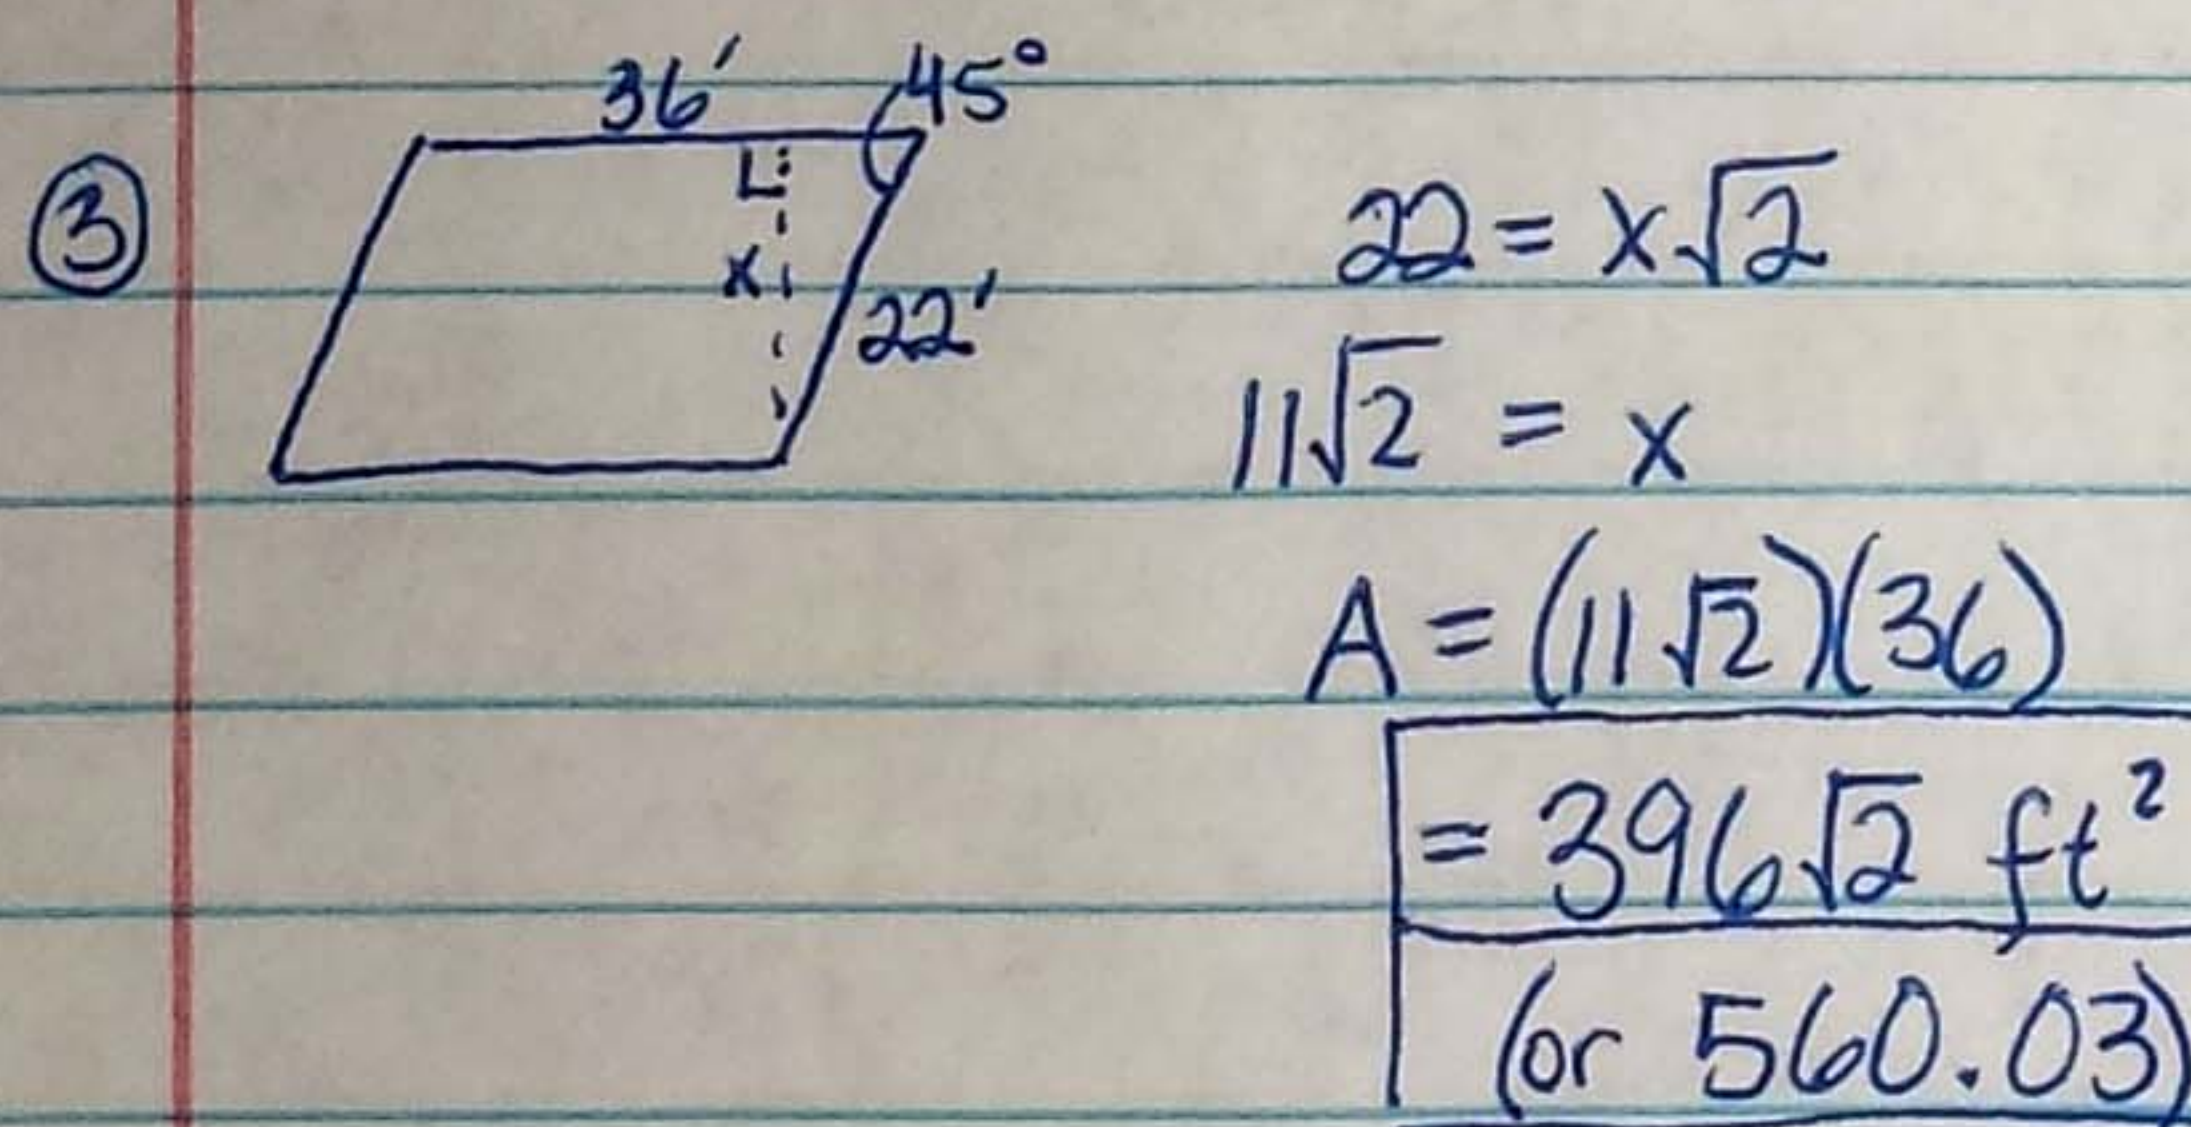 ③
36' 45°
x
22'
22 = x√2
11√2 = x
A = (11√2)(36)
= 396√2 ft²
(or 560.03)